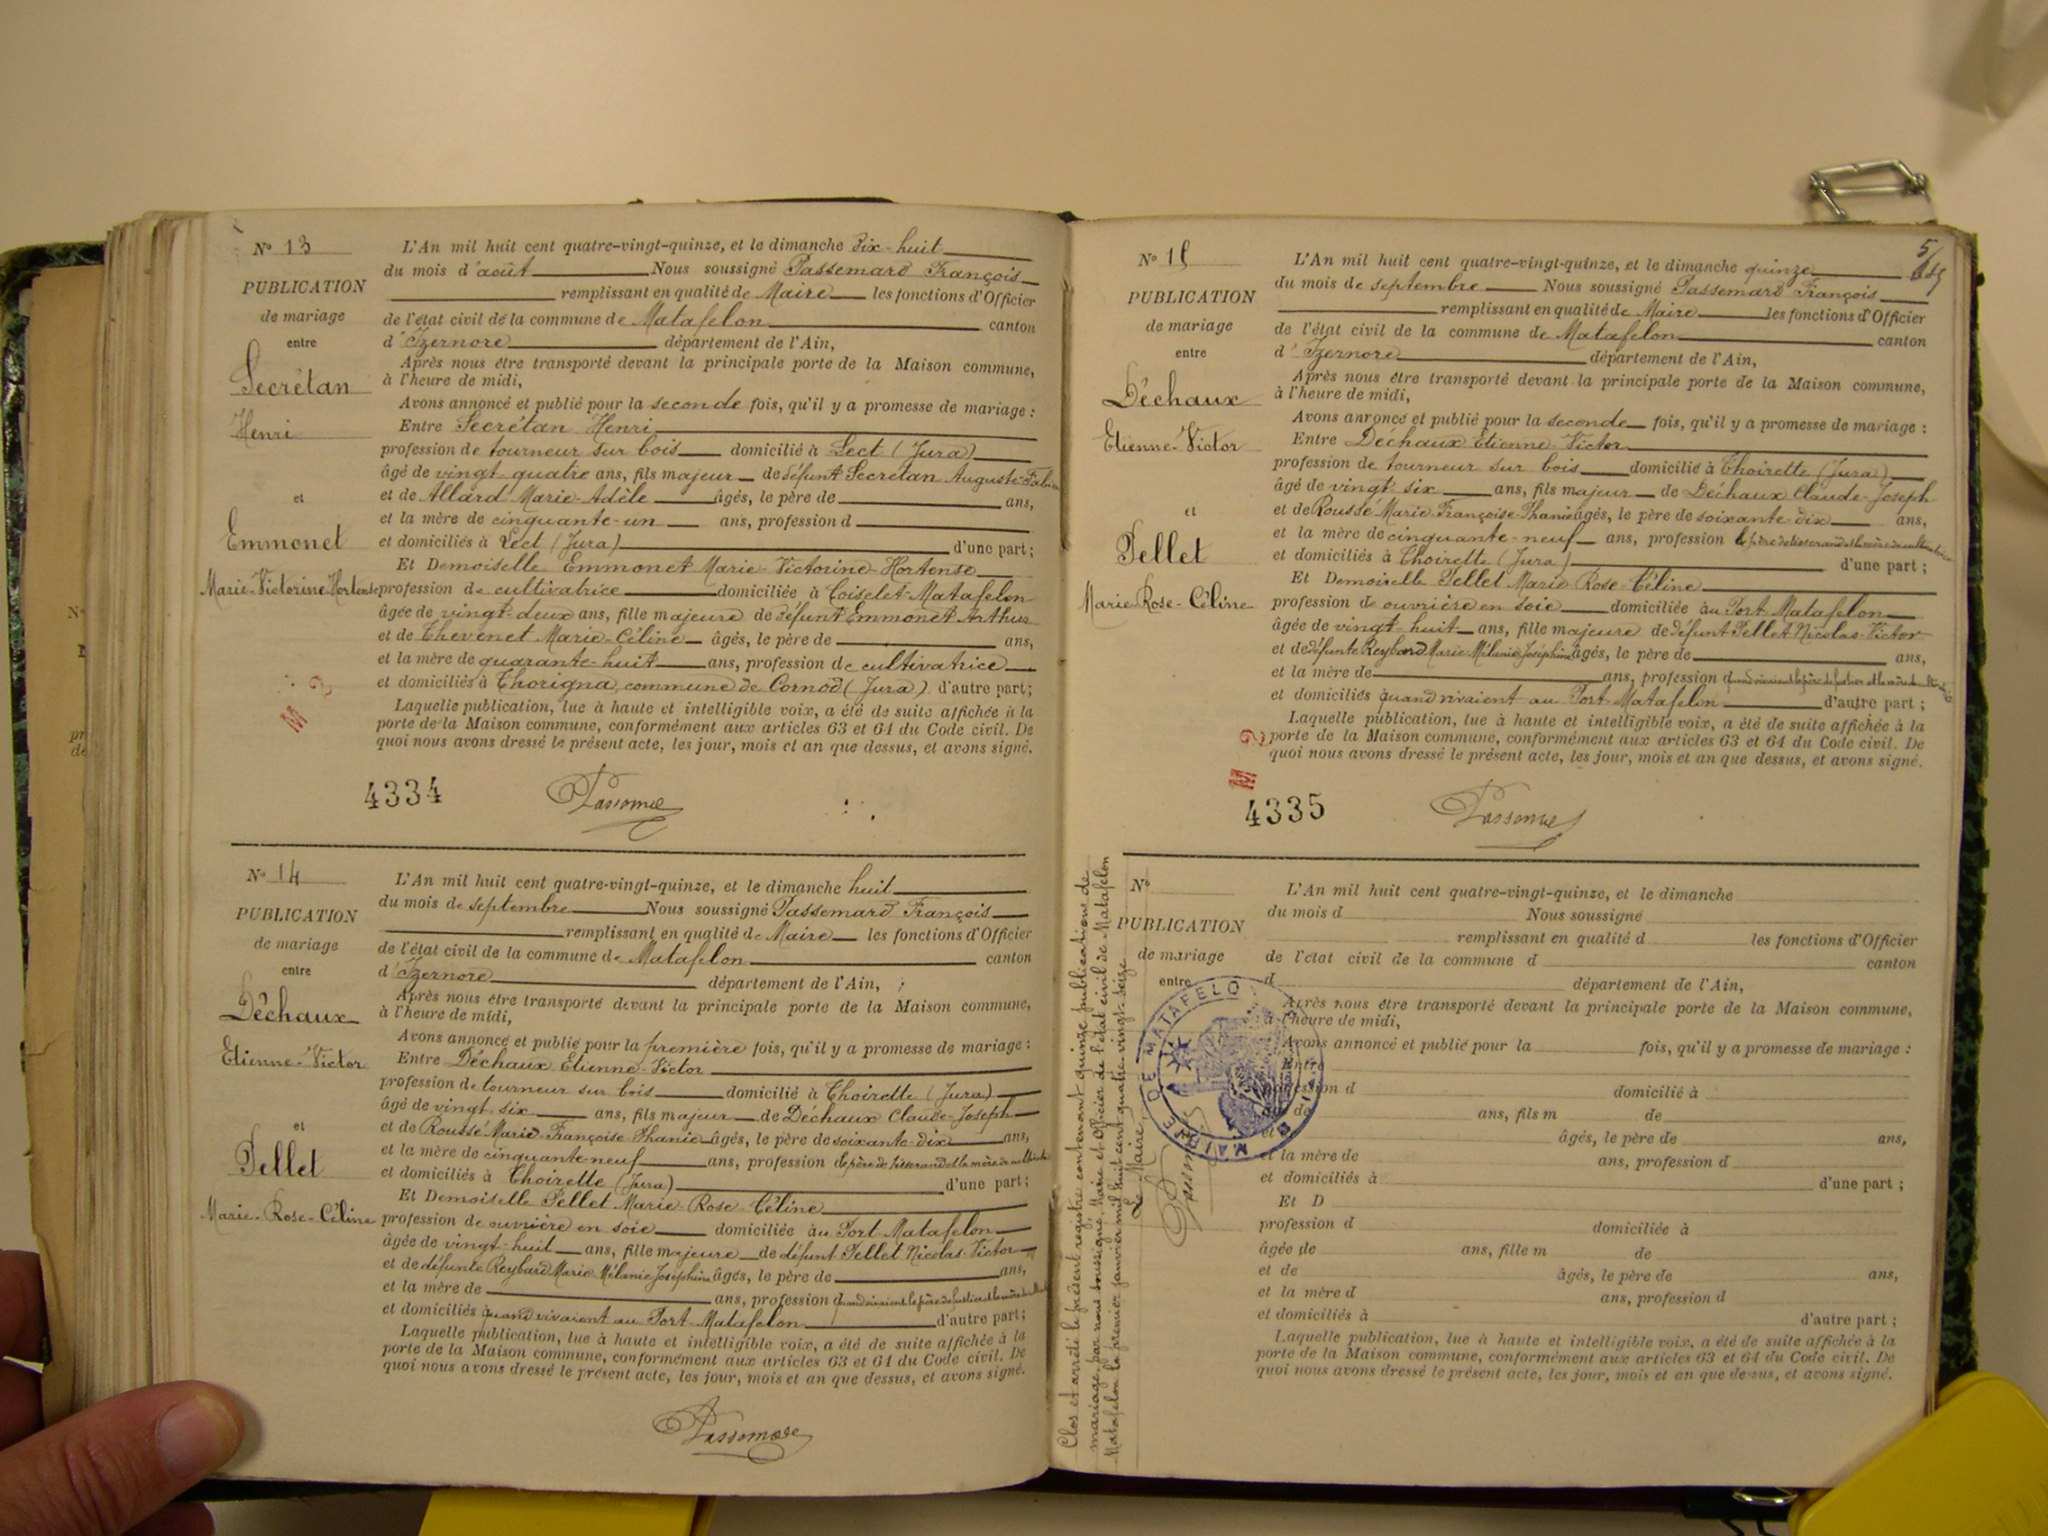 N° 13
PUBLICATION
de mariage
entre
Secrétan
Henri
et
Emmonet
Marie-Victorine-Hortense
L'An mil huit cent quatre-vingt-quinze, et le dimanche Dix-huit
du mois d'août Nous soussigné Passemard François
remplissant en qualité de Maire les fonctions d'Officier
de l'état civil de la commune de Matafelon canton
d'Izernore département de l'Ain,
Après nous être transporté devant la principale porte de la Maison commune,
à l'heure de midi,
Avons annoncé et publié pour la seconde fois, qu'il y a promesse de mariage :
Entre Secrétan Henri
profession de tourneur sur bois domicilié à Lect (Jura)
âgé de vingt-quatre ans, fils majeur de défunt Secrétan Auguste-Fabien
et de Allard Marie-Adèle âgés, le père de ans,
et la mère de cinquante-un ans, profession d
et domiciliés à Lect (Jura) d'une part ;
Et Demoiselle Emmonet Marie-Victorine-Hortense
profession de cultivatrice domiciliée à Coiselet-Matafelon
âgée de vingt-deux ans, fille majeure de défunt Emmonet Arthur
et de Thevenet Marie-Céline âgés, le père de ans,
et la mère de quarante-huit ans, profession de cultivatrice
et domiciliés à Thorigna, commune de Cornod (Jura) d'autre part ;
Laquelle publication, lue à haute et intelligible voix, a été de suite affichée à la
porte de la Maison commune, conformément aux articles 63 et 64 du Code civil. De
quoi nous avons dressé le présent acte, les jour, mois et an que dessus, et avons signé.
M 2
4334
N° 14
PUBLICATION
de mariage
entre
Déchaux
Etienne-Victor
et
Pellet
Marie-Rose-Céline
L'An mil huit cent quatre-vingt-quinze, et le dimanche huit
du mois de septembre Nous soussigné Passemard François
remplissant en qualité de Maire les fonctions d'Officier
de l'état civil de la commune de Matafelon canton
d'Izernore département de l'Ain,
Après nous être transporté devant la principale porte de la Maison commune,
à l'heure de midi,
Avons annoncé et publié pour la première fois, qu'il y a promesse de mariage :
Entre Déchaux Etienne-Victor
profession de tourneur sur bois domicilié à Thoirette (Jura)
âgé de vingt six ans, fils majeur de Déchaux Claude-Joseph
et de Roussé Marie Françoise Phanie âgés, le père de soixante-dix ans,
et la mère de cinquante neuf ans, profession le père de tisserand et la mère de cultivatrice
et domiciliés à Thoirette (Jura) d'une part ;
Et Demoiselle Pellet Marie Rose Céline
profession de ouvrière en soie domiciliée au Port Matafelon
âgée de vingt-huit ans, fille majeure de défunt Pellet Nicolas-Victor
et de défunte Reybard Marie Mélanie Joséphine âgés, le père de ans,
et la mère de ans, profession d quand vivaient le père de et la mère de
et domiciliés quand vivaient au Port Matafelon d'autre part ;
Laquelle publication, lue à haute et intelligible voix, a été de suite affichée à la
porte de la Maison commune, conformément aux articles 63 et 64 du Code civil. De
quoi nous avons dressé le présent acte, les jour, mois et an que dessus, et avons signé.
N° 15
PUBLICATION
de mariage
entre
Déchaux
Etienne-Victor
et
Pellet
Marie-Rose-Céline
L'An mil huit cent quatre-vingt-quinze, et le dimanche quinze
du mois de septembre Nous soussigné Passemard François
remplissant en qualité de Maire les fonctions d'Officier
de l'état civil de la commune de Matafelon canton
d'Izernore département de l'Ain,
Après nous être transporté devant la principale porte de la Maison commune,
à l'heure de midi,
Avons annoncé et publié pour la seconde fois, qu'il y a promesse de mariage :
Entre Déchaux Etienne Victor
profession de tourneur sur bois domicilié à Thoirette (Jura)
âgé de vingt-six ans, fils majeur de Déchaux Claude-Joseph
et de Roussé Marie Françoise-Phanie âgés, le père de soixante dix ans,
et la mère de cinquante-neuf ans, profession le père de tisserand et la mère de cultivatrice
et domiciliés à Thoirette (Jura) d'une part ;
Et Demoiselle Pellet Marie Rose-Céline
profession de ouvrière en soie domiciliée au Port Matafelon
âgée de vingt-huit ans, fille majeure de défunt Pellet Nicolas-Victor
et de défunte Reybard Marie Mélanie Joséphine âgés, le père de ans,
et la mère de ans, profession d quand vivaient le père de et la mère de
et domiciliés quand vivaient au Port Matafelon d'autre part ;
Laquelle publication, lue à haute et intelligible voix, a été de suite affichée à la
porte de la Maison commune, conformément aux articles 63 et 64 du Code civil. De
quoi nous avons dressé le présent acte, les jour, mois et an que dessus, et avons signé.
M 2
4335
Clos et arrêté le présent registre contenant quinze publications de
mariage, par nous soussigné, Maire et officier de l'état civil de Matafelon
Matafelon le premier janvier mil huit cent quatre-vingt-seize
Le Maire,
MAIRIE DE MATAFELON
N°
PUBLICATION
de mariage
entre
L'An mil huit cent quatre-vingt-quinze, et le dimanche
du mois d Nous soussigné
remplissant en qualité d les fonctions d'Officier
de l'état civil de la commune d canton
d département de l'Ain,
Après nous être transporté devant la principale porte de la Maison commune,
à l'heure de midi,
Avons annoncé et publié pour la fois, qu'il y a promesse de mariage :
Entre
profession d domicilié à
âgé de ans, fils m de
et de âgés, le père de ans,
et la mère de ans, profession d
et domiciliés à d'une part ;
Et D
profession d domiciliée à
âgée de ans, fille m de
et de âgés, le père de ans,
et la mère d ans, profession d
et domiciliés à d'autre part ;
Laquelle publication, lue à haute et intelligible voix, a été de suite affichée à la
porte de la Maison commune, conformément aux articles 63 et 64 du Code civil. De
quoi nous avons dressé le présent acte, les jour, mois et an que dessus, et avons signé.